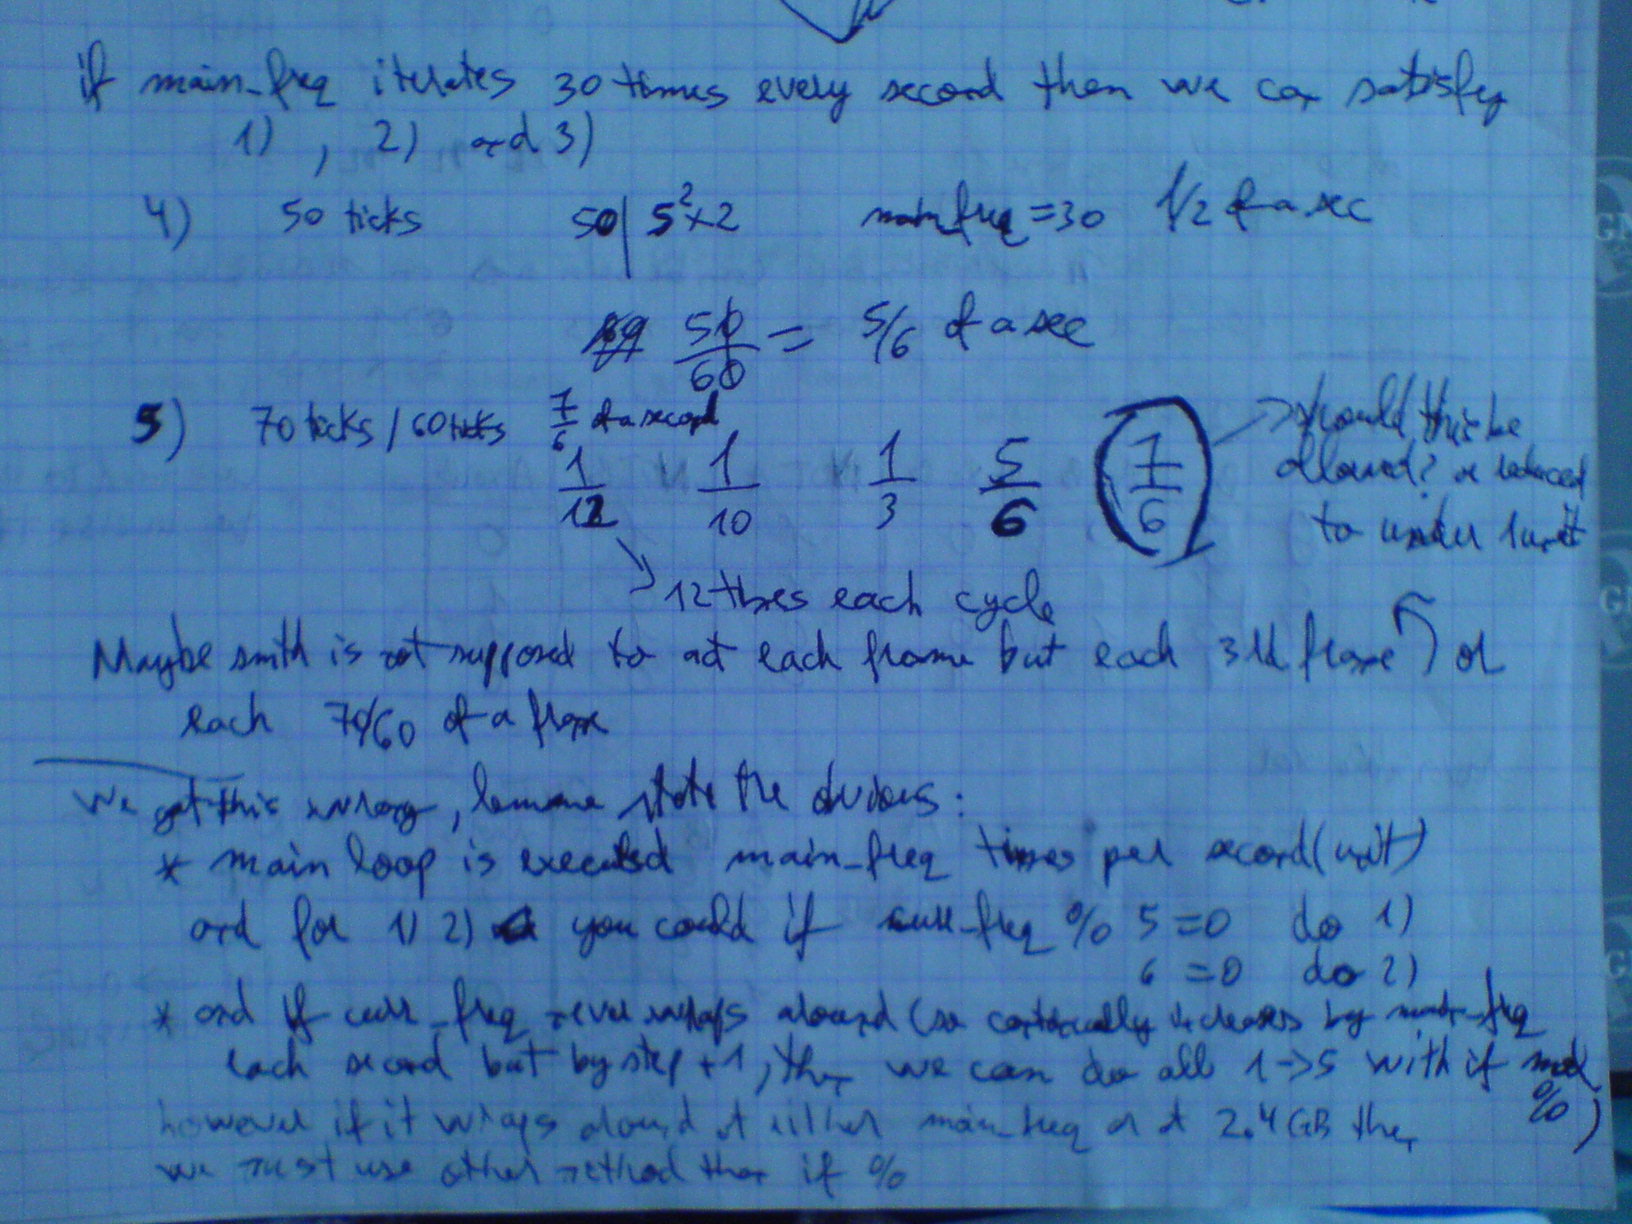 if main_freq iterates 30 times every second then we can satisfy
1) , 2) and 3)
4) 50 ticks 50| 5²×2 main_freq = 30 1/2 of a sec
50/60 = 5/6 of a sec
5) 70 ticks / 60 ticks 7/6 of a second
1/12 1/10 1/3 5/6 7/6 → should this be
allowed? or reduced
to under 1 unit
→ 12 times each cycle
Maybe smth is not supposed to act each frame but each 3rd frame or
each 70/60 of a frame
We got this wrong, lemme state the obvious:
* main loop is executed main_freq times per second (unit)
and for 1) 2) you could if curr_freq % 5 = 0 do 1)
6 = 0 do 2)
* and if curr_freq never wraps around (so continually increases by main_freq
each second but by step +1, then we can do all 1->5 with if mod
%)
however if it wraps around at either main_freq or at 2.4GB then
we must use other method than if %